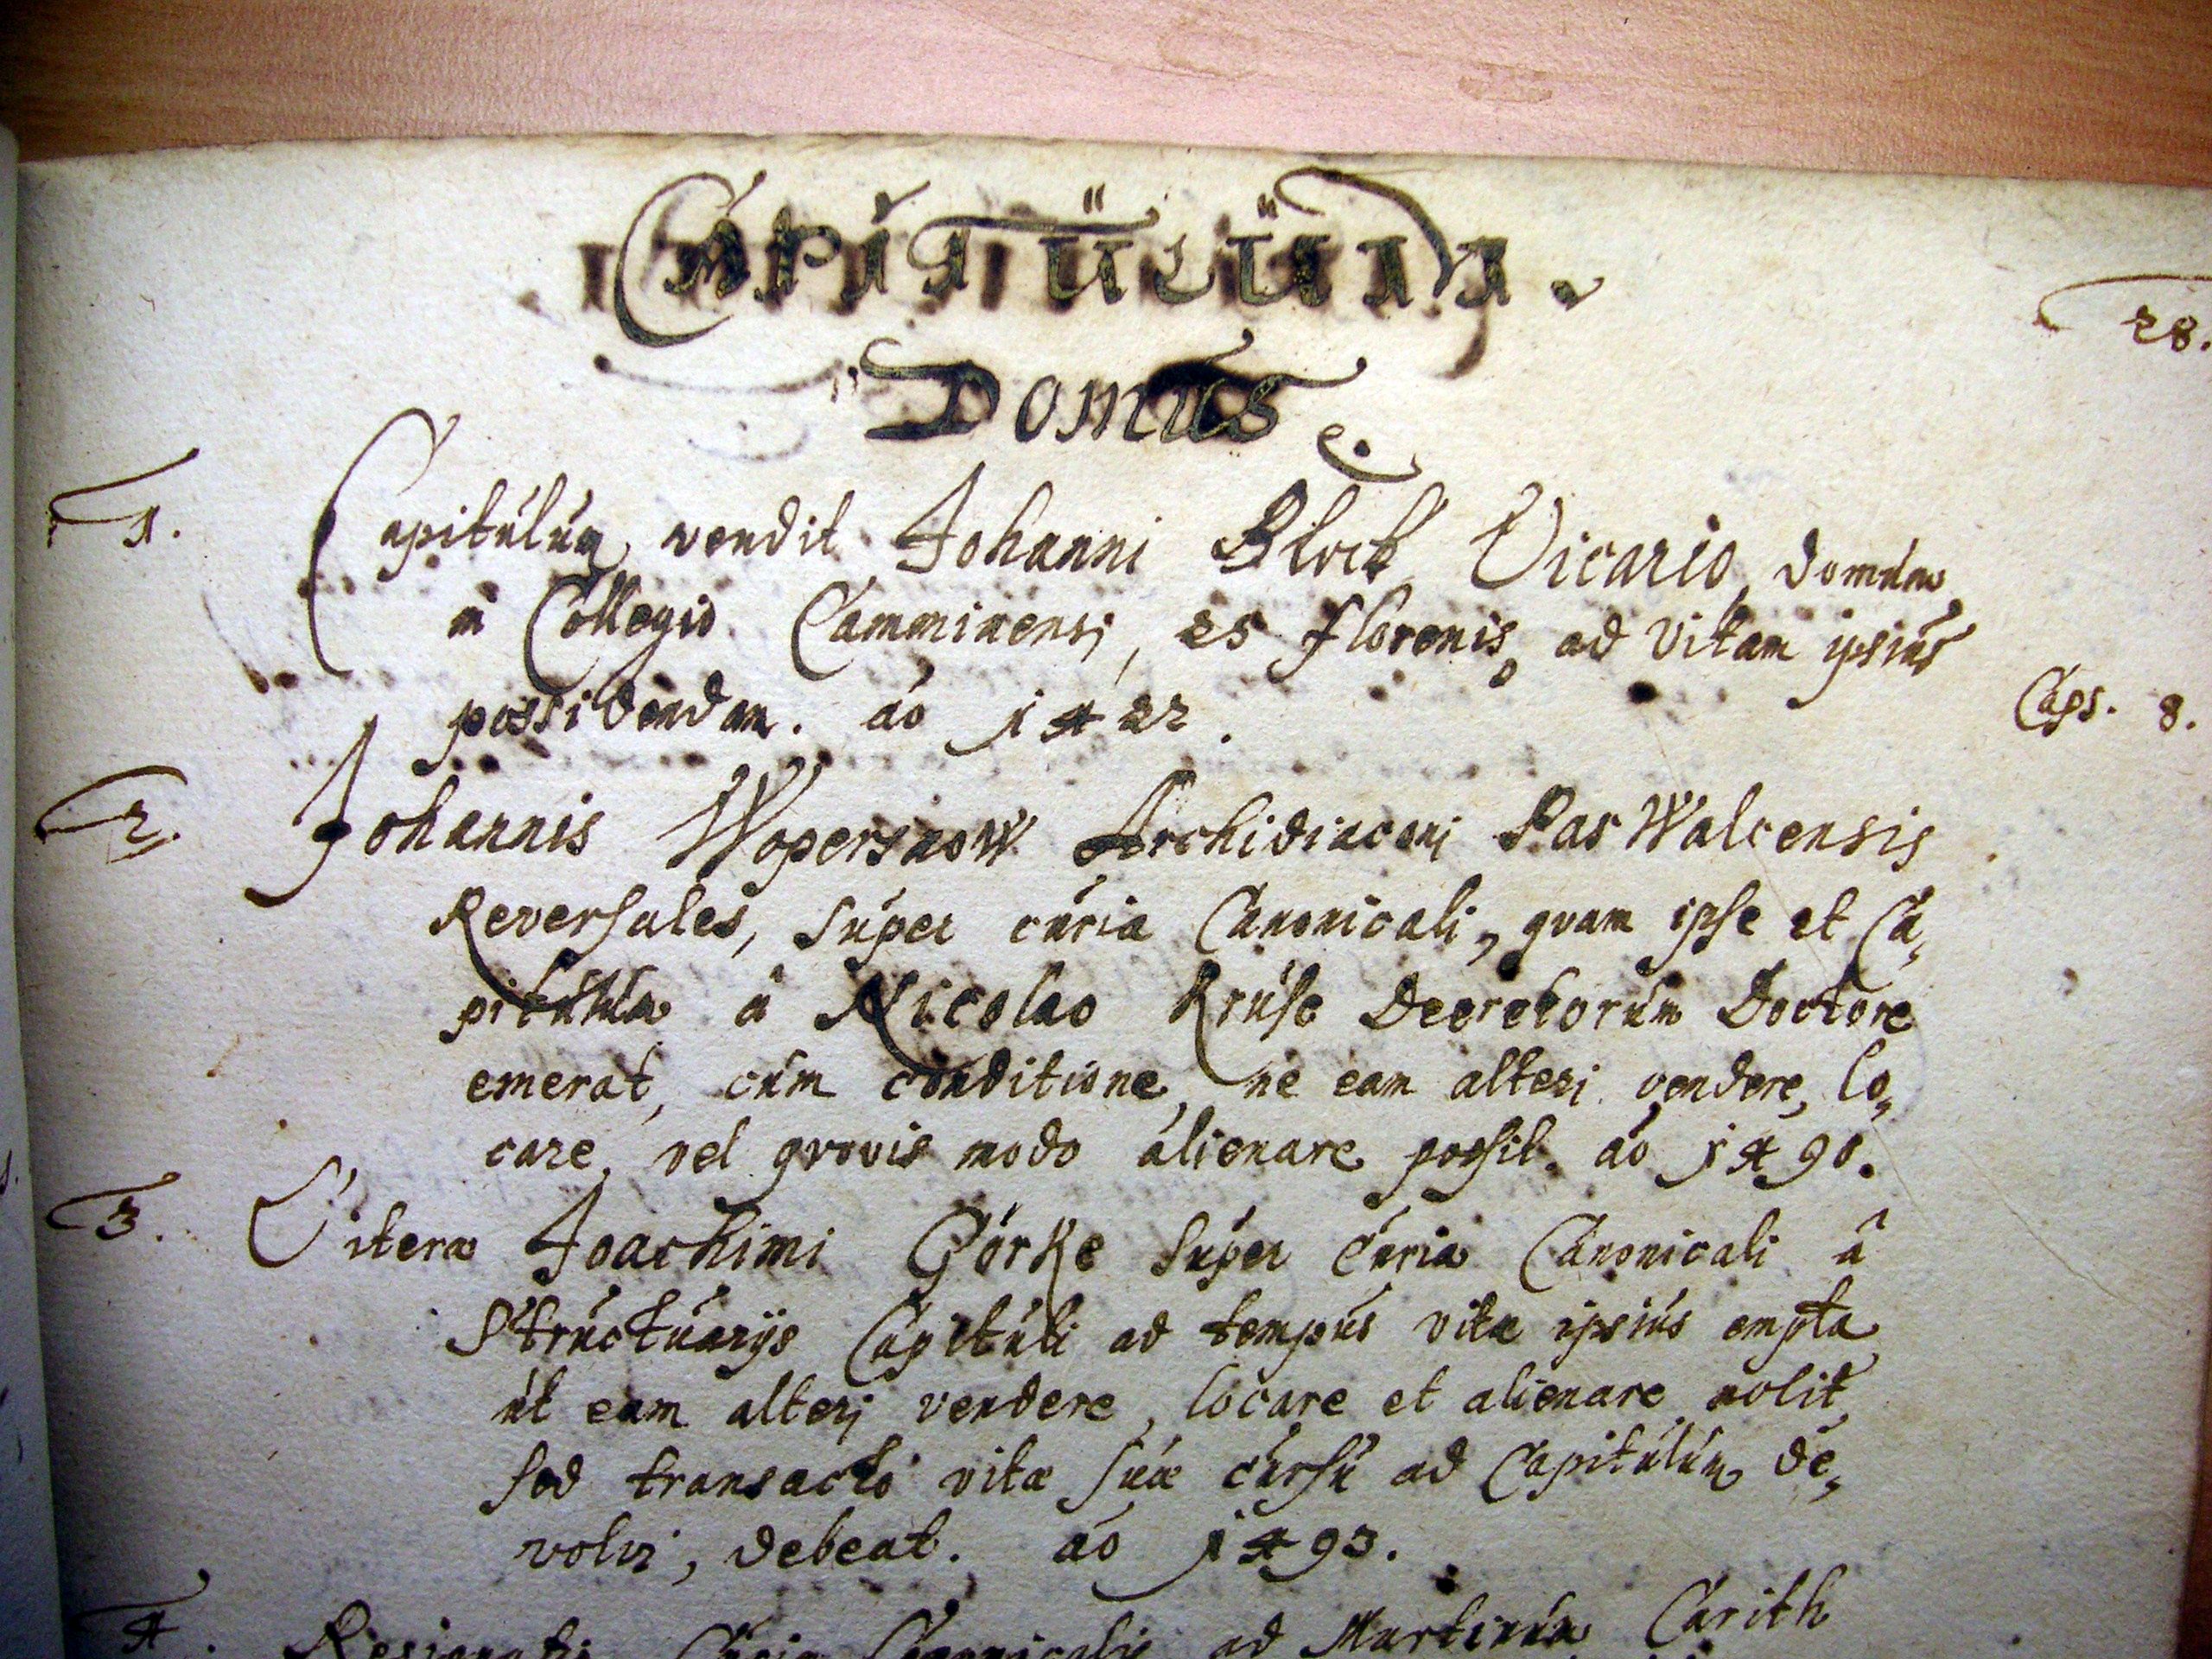 CAPITULUM.
28.
Domus.
1. Capitulum vendit Johanni Block Vicario, domum
in Collegio Camminensi, 25 florenis, ad vitam ipsius
possidendam. aõ 1422.
Caps. 8.
2. Johannis Wopersnow Archidiaconi PasWalcensis
Reversales, super curia Canonicali, qvam ipse et Ca-
pitulum à Nicolao Kruse Decretorum Doctore
emerat, cum conditione, ne eam alteri vendere, lo-
care, vel qvovis modo alienare possit. aõ 1490.
3. Literæ Joachimi Görke super Curia Canonicali à
Structuarijs Capituli ad tempus vitæ ipsius empta
ut eam alteri vendere, locare et alienare nolit
sed transacto vitæ suæ cursu ad Capitulum de-
volvi, debeat. aõ 1493.
4. Curia Canonicalis ad Martinum Carith